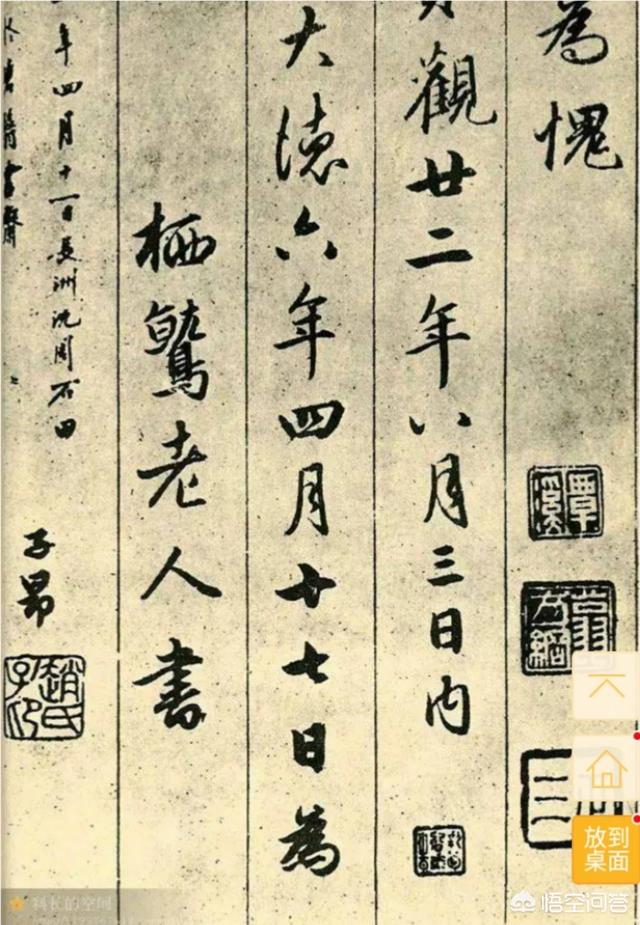 為愧
觀廿二年八月三日內
大德六年四月廿七日為
栖鷲老人書
年四月十一日長洲沈周石田
子昂
趙氏子昂
覃溪
放到
桌面
科长的空间
悟空问答